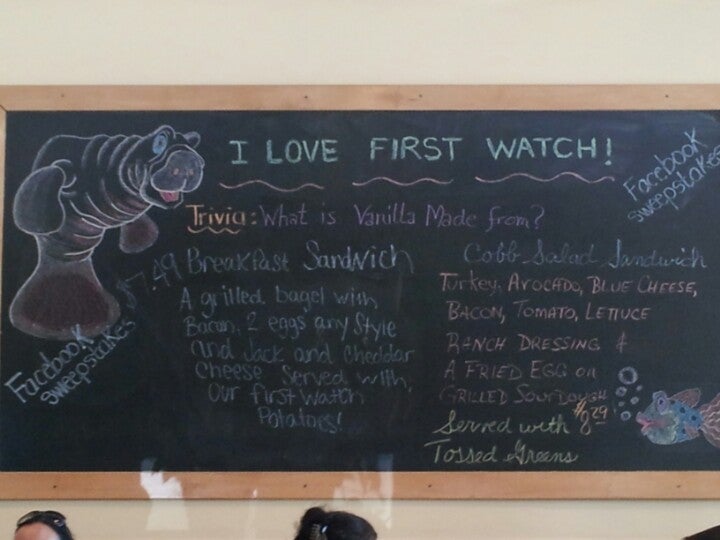 I LOVE FIRST WATCH!
Facebook
sweepstakes
Trivia: What is Vanilla Made from?
$7.49 Breakfast Sandwich
A grilled bagel with
Bacon, 2 eggs any Style
and Jack and cheddar
Cheese served with,
our first watch
Potatoes!
Cobb Salad Sandwich
Turkey, Avocado, Blue Cheese,
Bacon, Tomato, Lettuce
Ranch Dressing &
A Fried Egg on
Grilled Sourdough
Served with $8.29
Tossed Greens
Facebook
sweepstakes